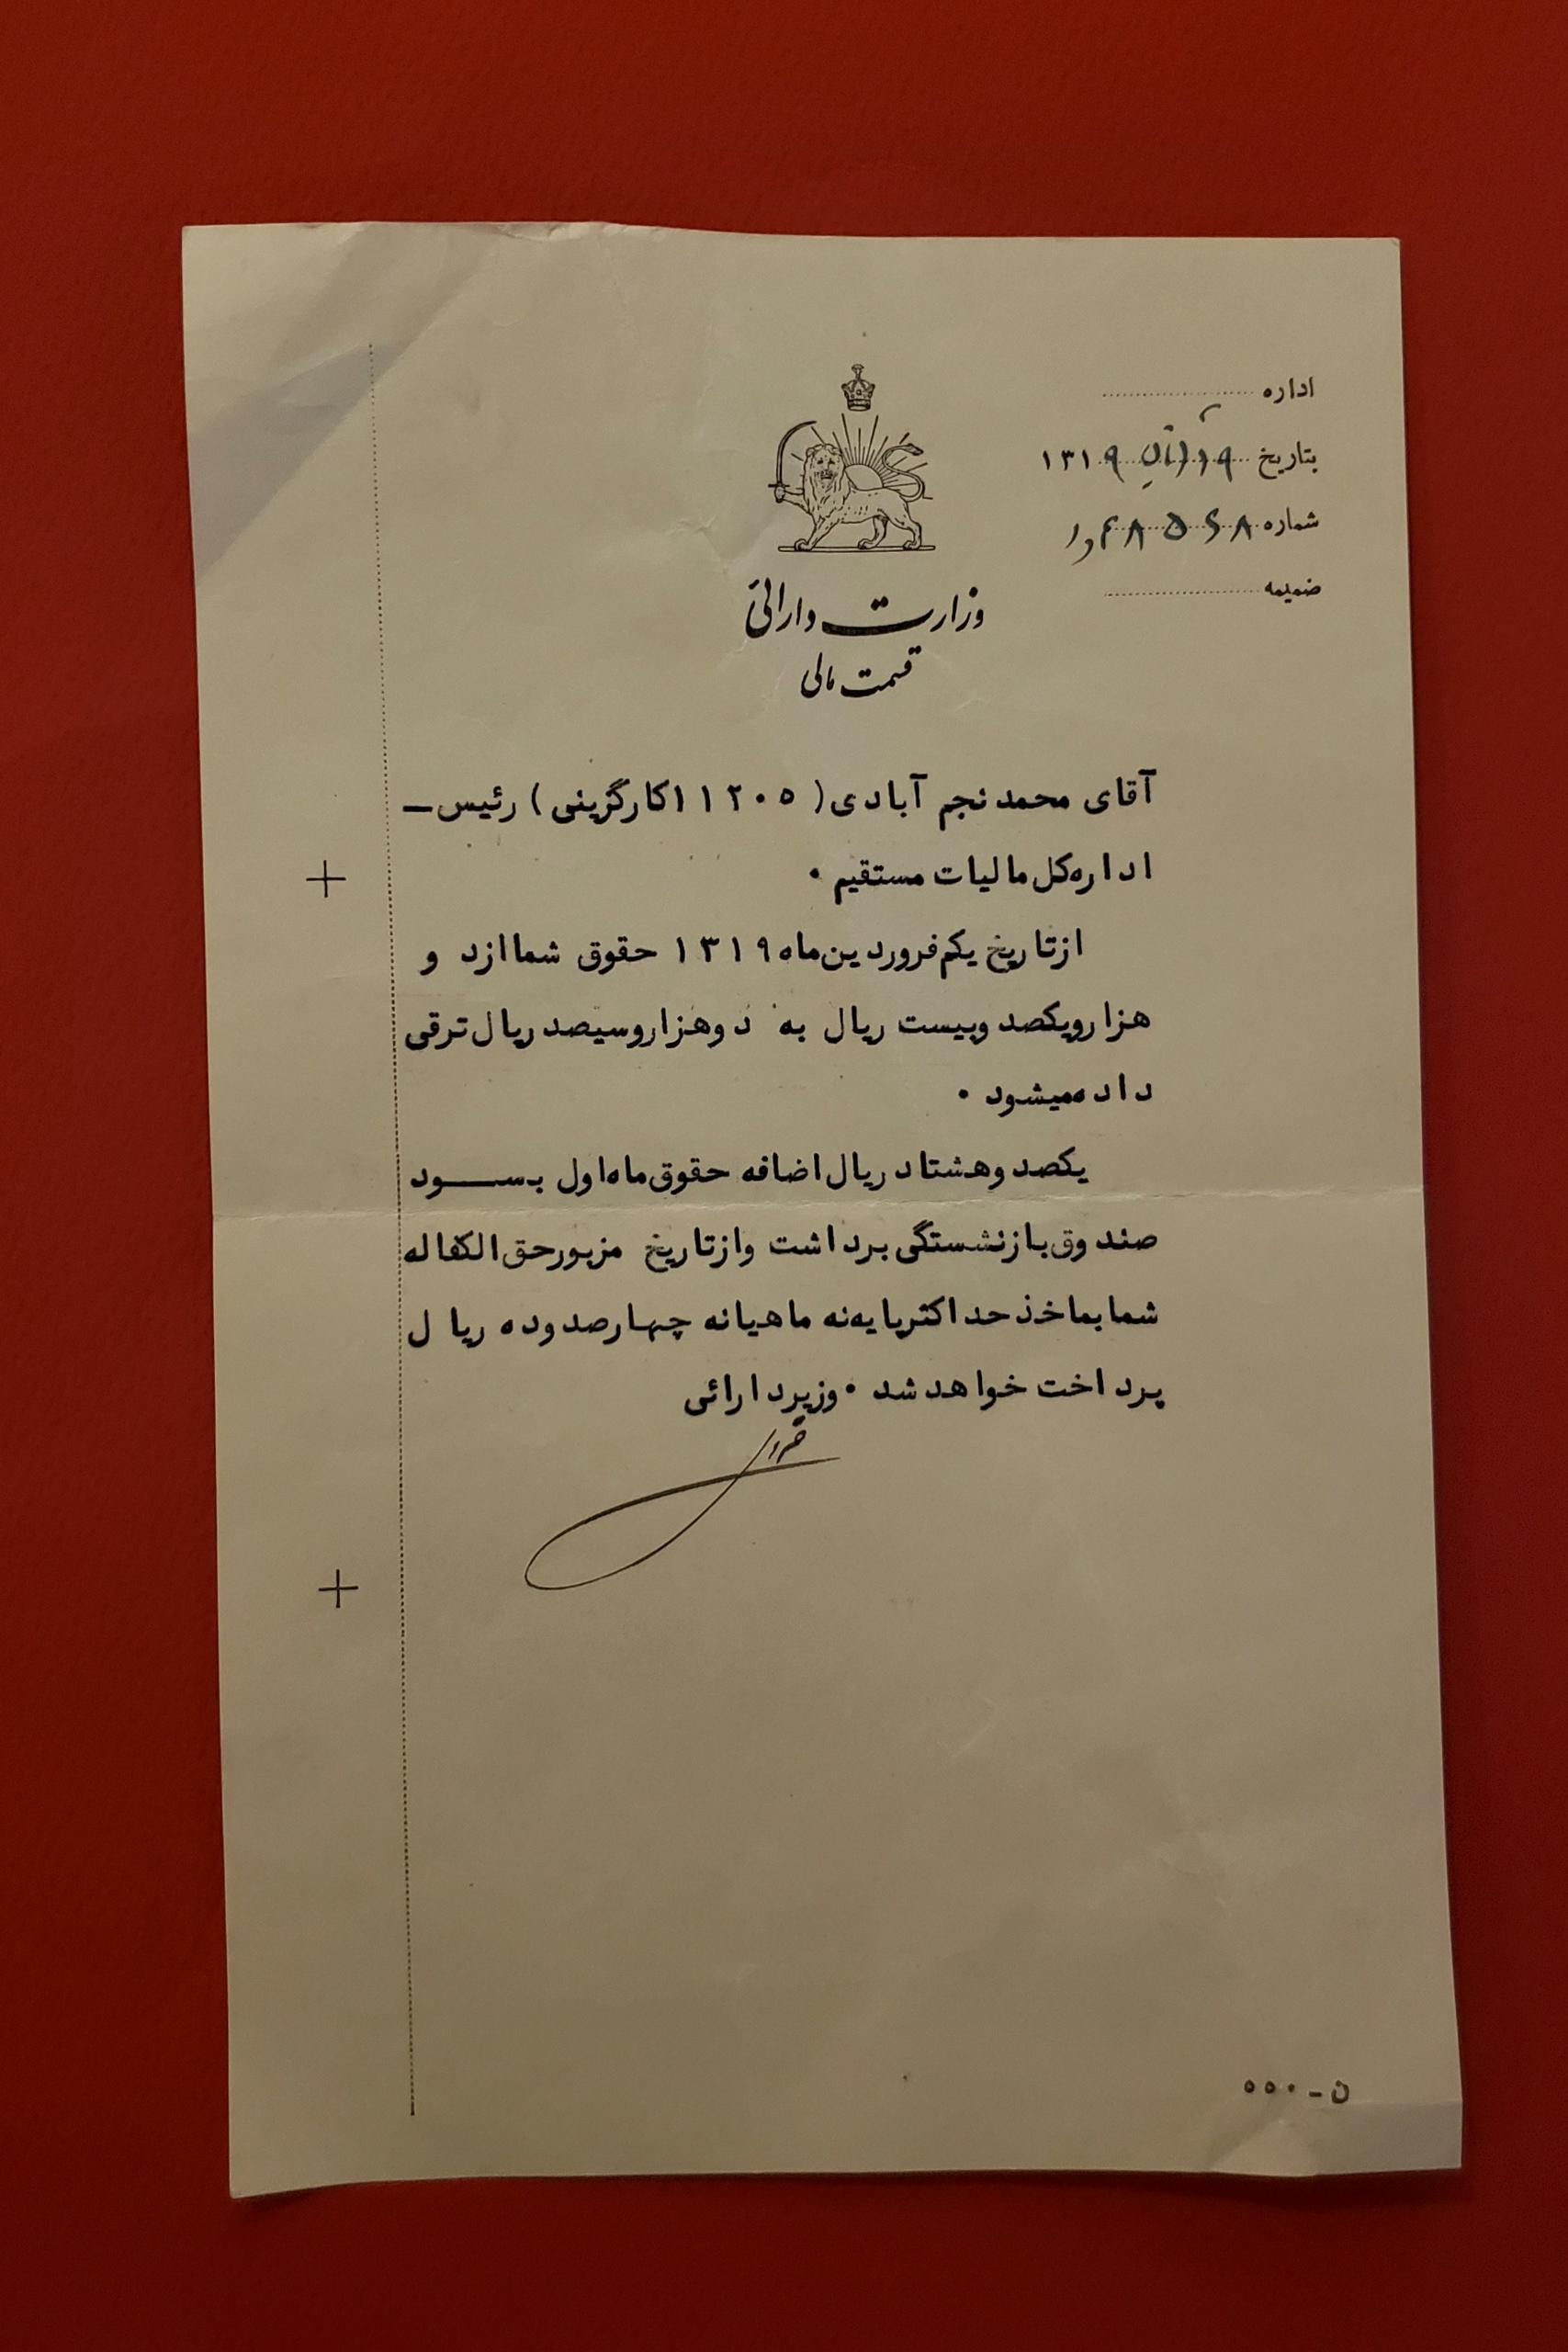 اداره
بتاریخ ۱۹ آبان ۱۳۱۹
شماره
ضمیمه
وزارت دارائی
قسمت مالی
آقای محمد نجم آبادی ( ۱۱۲۰۵ کارگزینی ) رئیس ـ
اداره کل مالیات مستقیم ۰
از تاریخ یکم فروردین ماه ۱۳۱۹ حقوق شما از د و
هزار و یکصد و بیست ریال به دو هزار و سیصد ریال ترقی
داده میشود ۰
یکصد و هشتاد ریال اضافه حقوق ماه اول بسـود
صندوق بازنشستگی برداشت و از تاریخ مزبور حق الکفاله
شما بماخذ حداکثر پایه نه ماهیانه چهارصد و ده ریال
پرداخت خواهد شد ۰ وزیر دارائی
ن ـ ۵۵۰